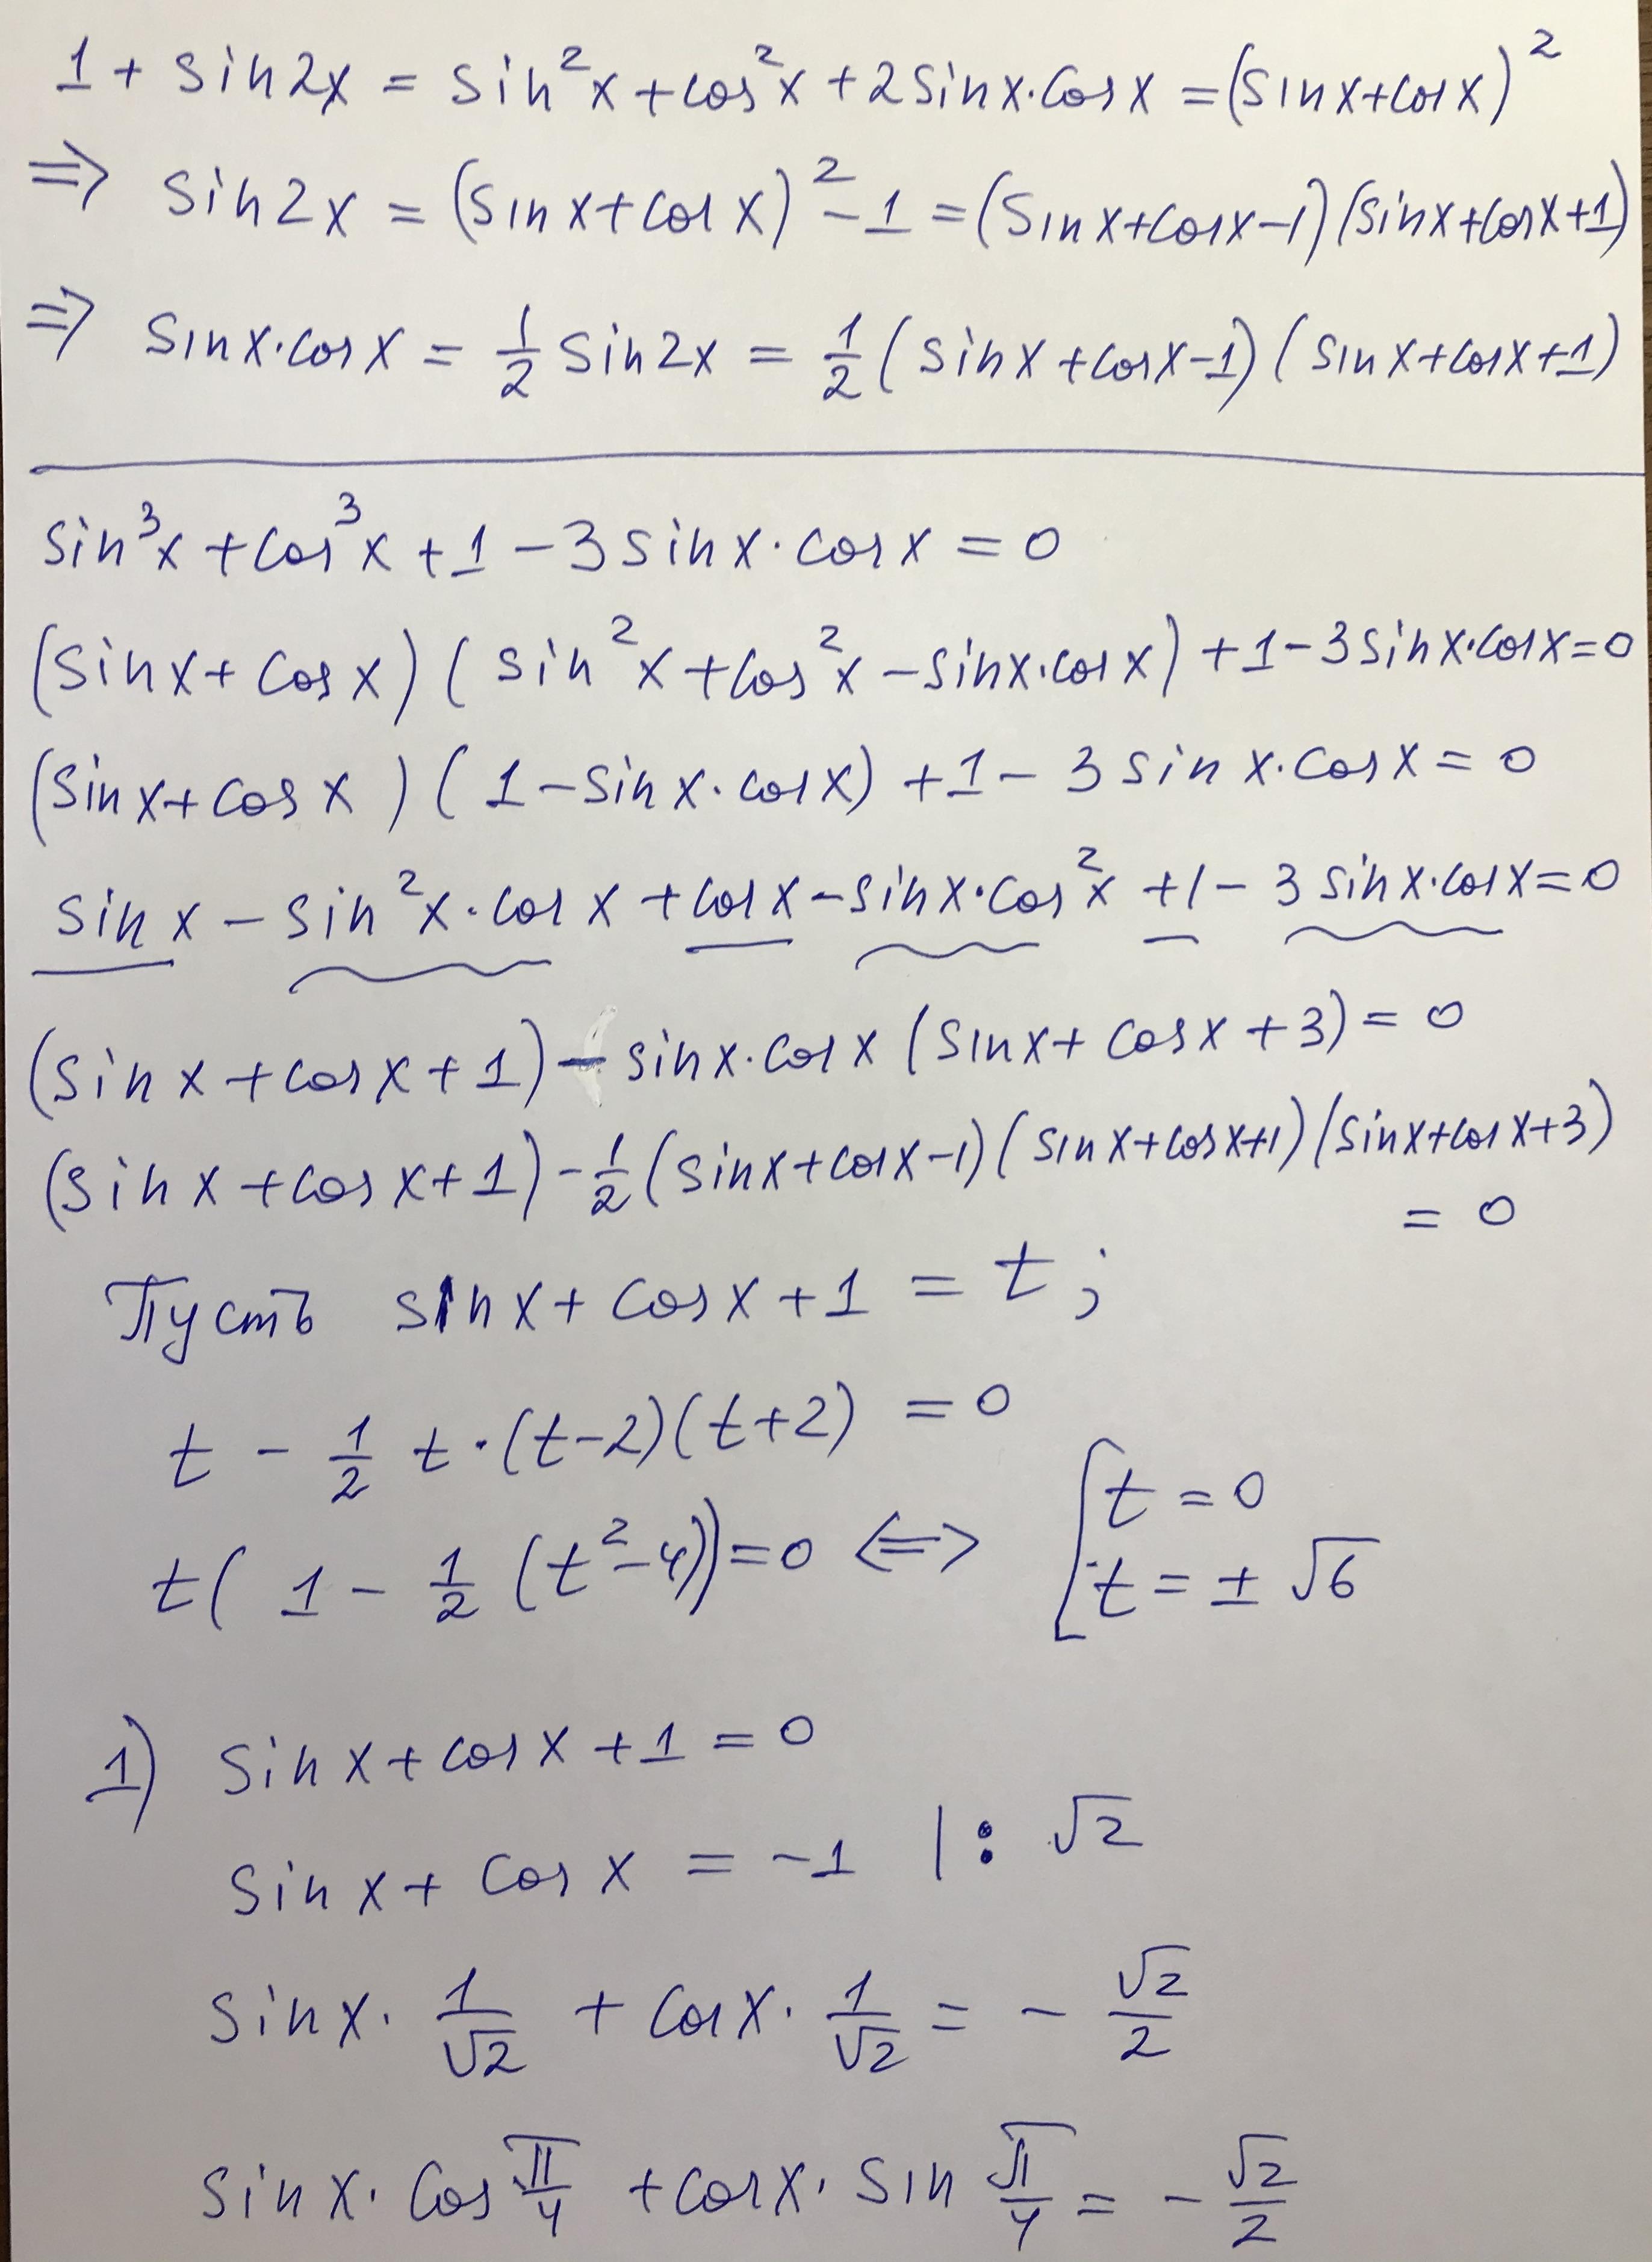 1 + sin2x = sin²x + cos²x + 2sinx·cosx = (sinx+cosx)²
⇒ sin2x = (sinx+cosx)² - 1 = (sinx+cosx-1)(sinx+cosx+1)
⇒ sinx·cosx = 1/2 sin2x = 1/2 (sinx+cosx-1)(sinx+cosx+1)
sin³x + cos³x + 1 - 3sinx·cosx = 0
(sinx+cosx)(sin²x+cos²x-sinx·cosx)+1-3sinx·cosx=0
(sinx+cosx)(1-sinx·cosx)+1-3sinx·cosx=0
sinx - sin²x·cosx + cosx - sinx·cos²x + 1 - 3sinx·cosx=0
(sinx+cosx+1) - sinx·cosx(sinx+cosx+3) = 0
(sinx+cosx+1) - 1/2 (sinx+cosx-1)(sinx+cosx+1)(sinx+cosx+3)
= 0
Пусть sinx+cosx+1 = t;
t - 1/2 t·(t-2)(t+2) = 0
t(1 - 1/2 (t²-4))=0 ⇔ [ t = 0
t = ± √6
1) sinx+cosx+1=0
sinx+cosx = -1 |: √2
sinx · 1/√2 + cosx · 1/√2 = - √2/2
sinx · cos π/4 + cosx · sin π/4 = - √2/2